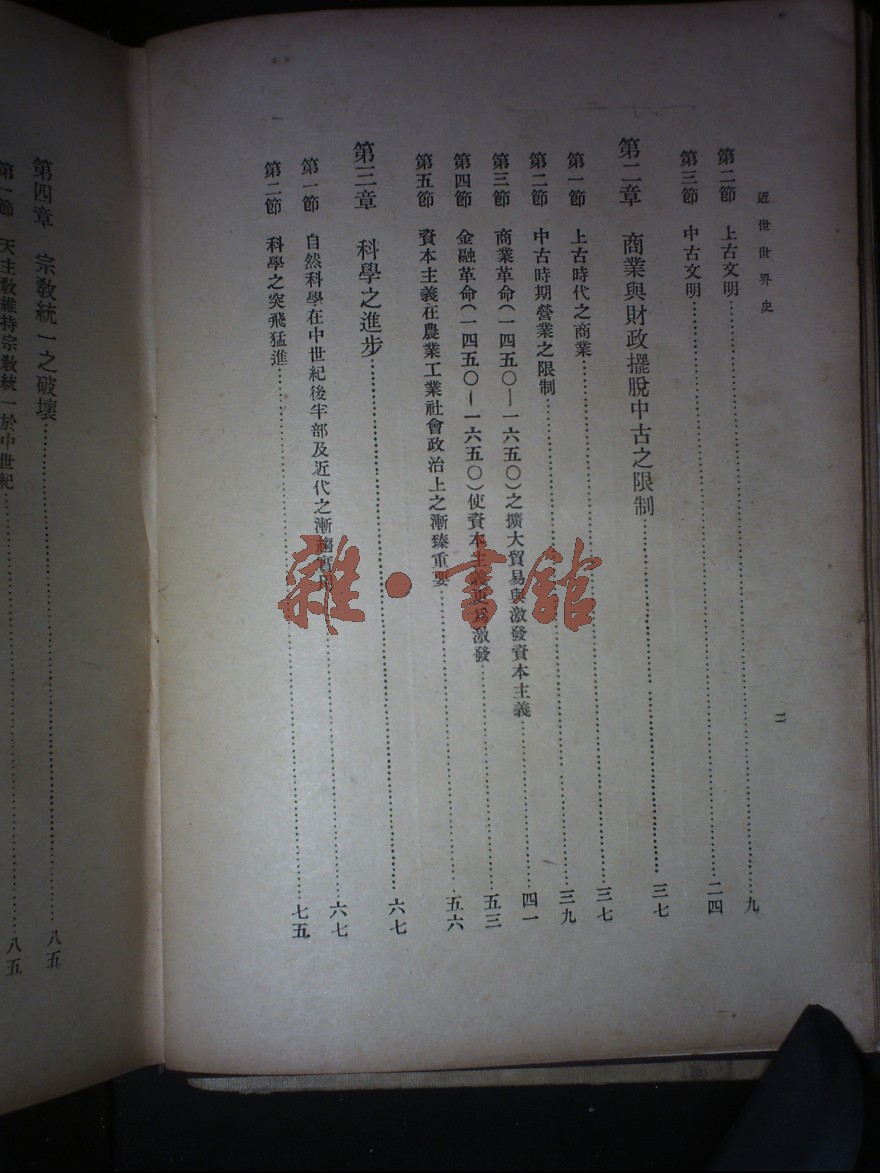 近世世界史
二
第二節 上古文明……九
第三節 中古文明……二四
第二章 商業與財政擺脫中古之限制……三七
第一節 上古時代之商業……三七
第二節 中古時期營業之限制……三九
第三節 商業革命(一四五〇—一六五〇)之擴大貿易與激發資本主義……四一
第四節 金融革命(一四五〇—一六五〇)使資本主義更爲激發……五三
第五節 資本主義在農業工業社會政治上之漸臻重要……五六
第三章 科學之進步……六七
第一節 自然科學在中世紀後半部及近代之漸趨……六七
第二節 科學之突飛猛進……七五
第四章 宗教統一之破壞……八五
第一節 天主教維持宗教統一於中世紀……八五
雜·書館